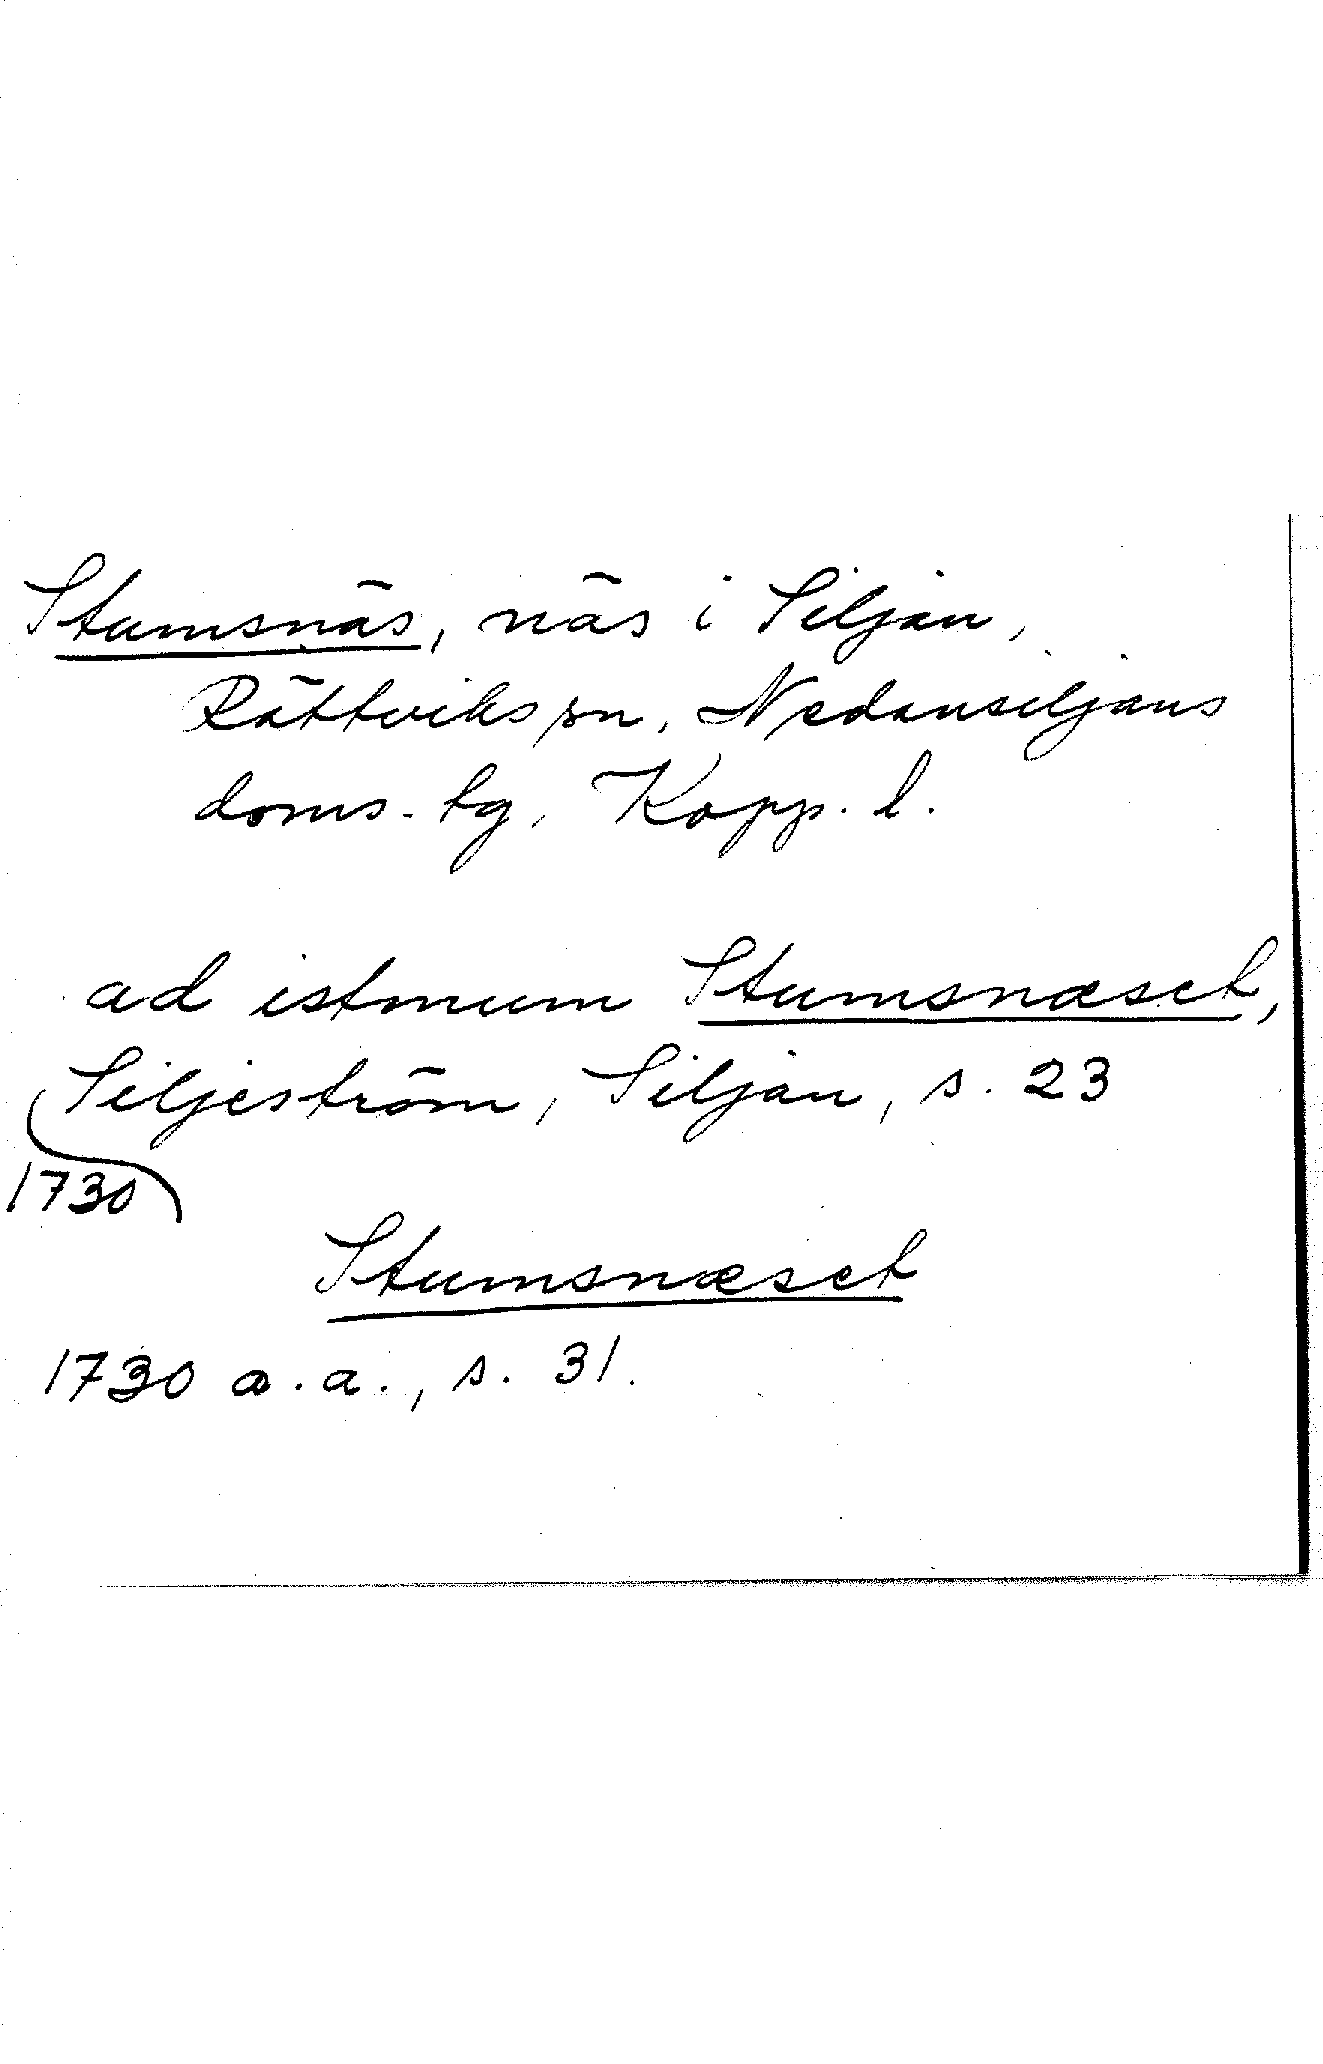 Stumsnäs, näs i Siljan,
Rättviks sn, Nedansiljans
doms. tg, Kopp. l.
ad istmum Stumsnæset,
Siljeström, Siljan, s. 23
1730
Stumsnæset
1730 a.a., s. 31.